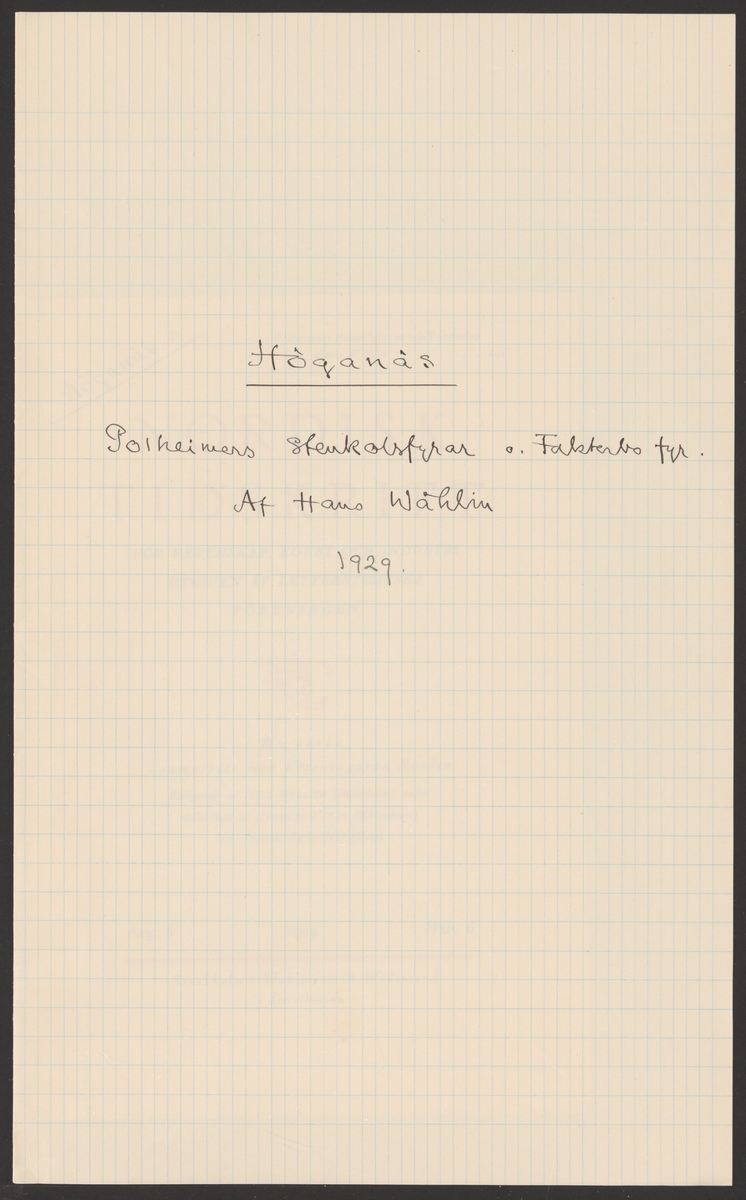 Höganäs
Polheimers stenkolsfyrar o. Falsterbo fyr.
Af Hans Wåhlin
1929.